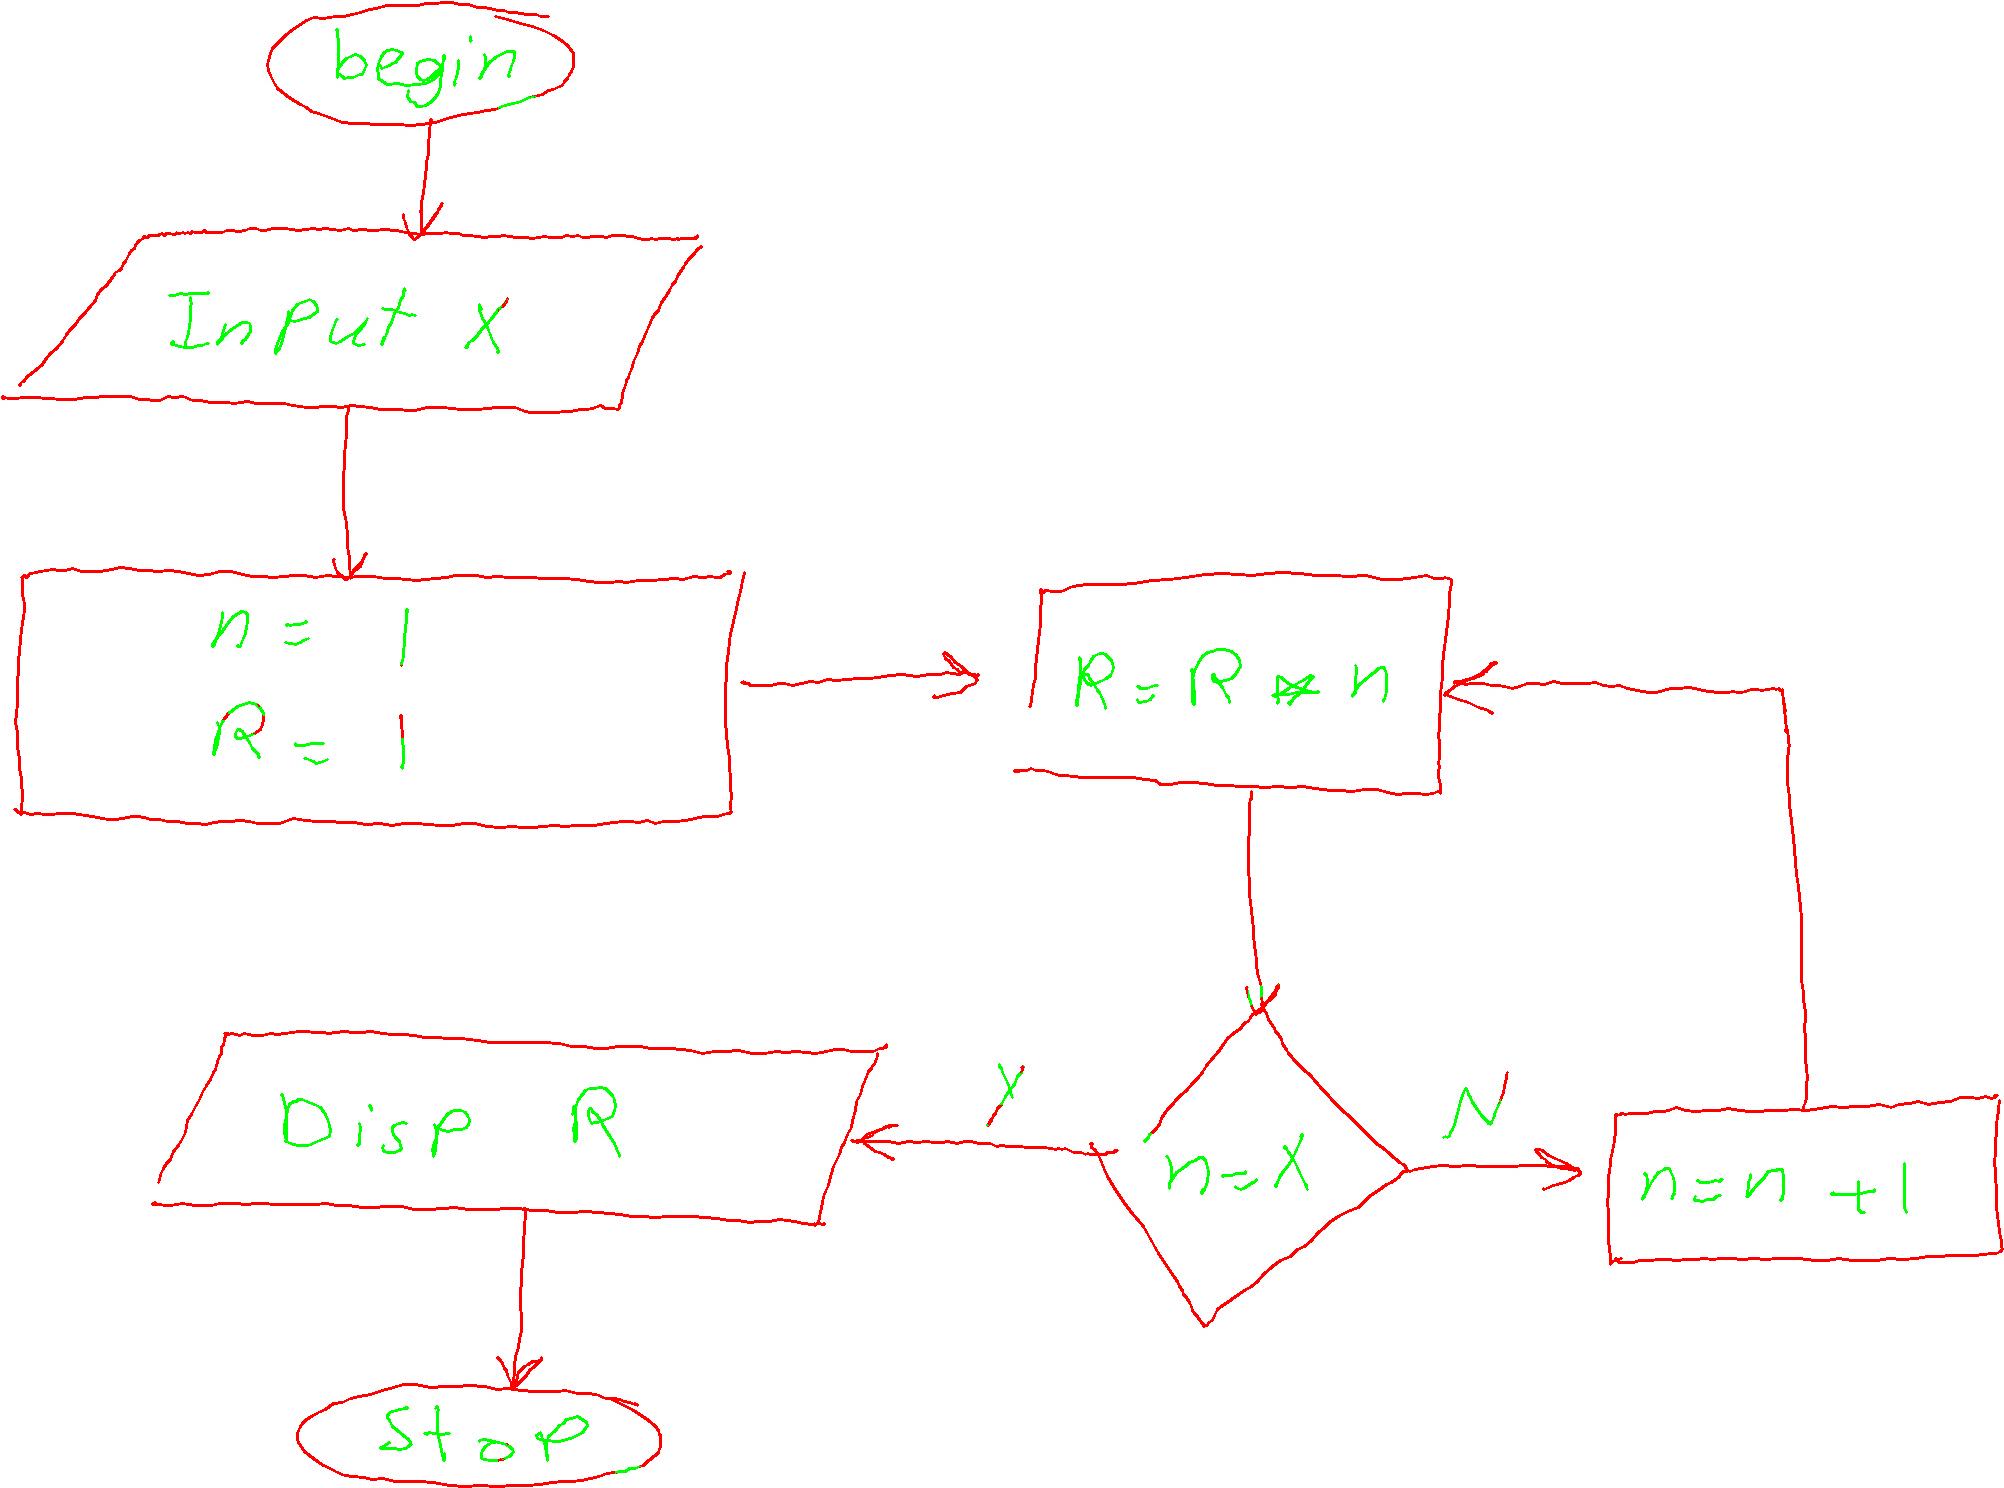 begin
Input X
n = 1
R = 1
R = R * n
n = X
Y
N
n = n + 1
Disp R
Stop